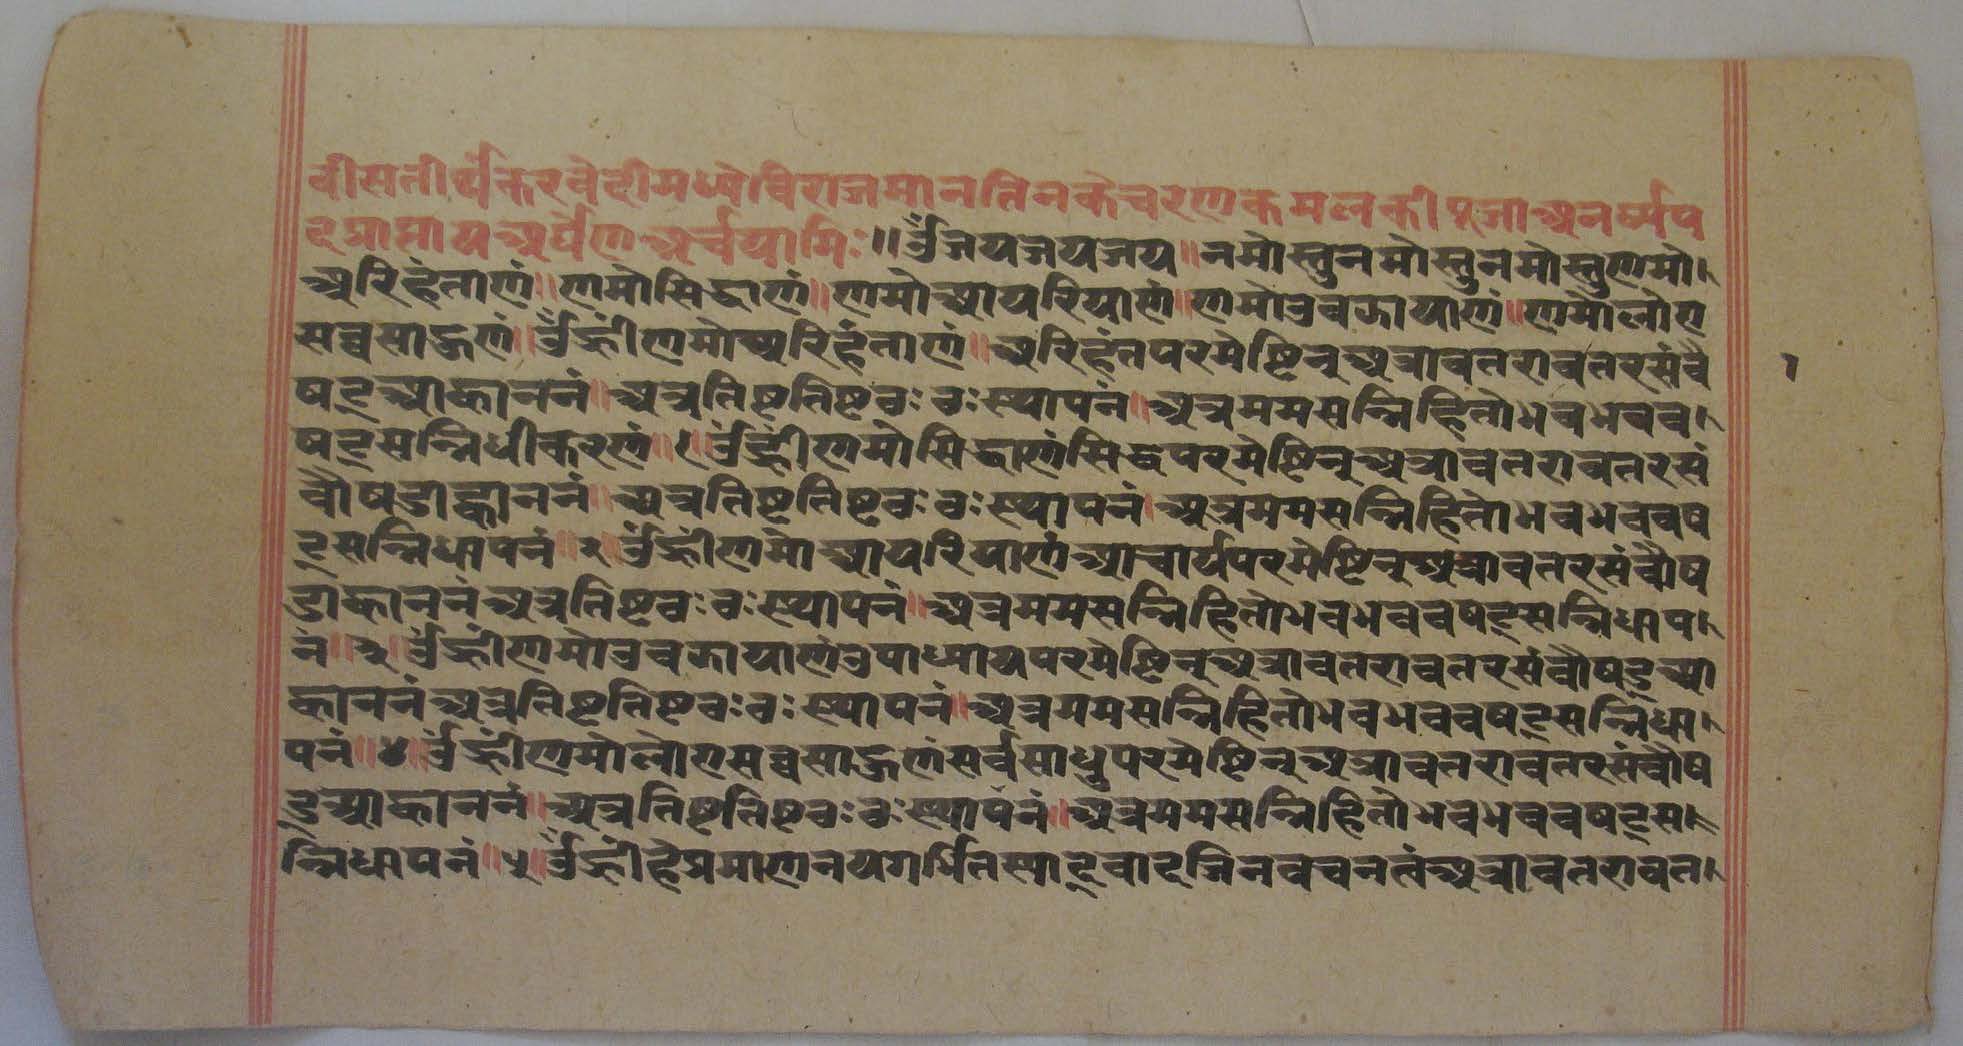 वीसतीर्थंकरवेहीमध्येविराजमानतिनकेचरणकमलकीपूजाअनर्घ्यप
दप्राप्तायअर्पणअर्चयामिः॥ॐजयजयजय॥नमोस्तुनमोस्तुनमोस्तुणमो
अरिहंताणं॥णमोसिद्धाणं॥णमोआयरियाणं॥णमोउवझायाणं॥णमोलोए
सव्वसाहूणं॥ॐह्रींणमोअरिहंताणं॥अरिहंतपरमेष्टिन्अत्रावतरावतरसंवौ
षट्आह्वाननं॥अत्रतिष्टतिष्टठःठःस्थापनं॥अत्रममसन्निहितोभवभवव
षट्सन्निधीकरणं॥१॥ॐह्रींणमोसिद्धाणंसिद्धपरमेष्टिन्अत्रावतरावतरसं
वौषडाह्वाननं॥अत्रतिष्टतिष्टठःठःस्थापनं॥अत्रममसन्निहितोभवभववष
ट्सन्निधापनं॥२॥ॐह्रींणमोआयरियाणंआचार्यपरमेष्टिन्अत्रावतरसंवौष
डाह्वाननंअत्रतिष्टठःठःस्थापनं॥अत्रममसन्निहितोभवभववषट्सन्निधाप
नं॥३॥ॐह्रींणमोउवझायाणंउपाध्यायपरमेष्टिन्अत्रावतरावतरसंवौषड्आ
ह्वाननंअत्रतिष्टतिष्टठःठःस्थापनं॥अत्रममसन्निहितोभवभववषट्सन्निधा
पनं॥४॥ॐह्रींणमोलोएसव्वसाहूणंसर्वसाधुपरमेष्टिन्अत्रावतरावतरसंवौष
ड्आह्वाननं॥अत्रतिष्टतिष्टठःठःस्थापनं॥अत्रममसन्निहितोभवभववषट्स
न्निधापनं॥५॥ॐह्रींहेप्रमाणनयगर्भितस्याद्वादजिनवचनत्वंअत्रावतरावत
१